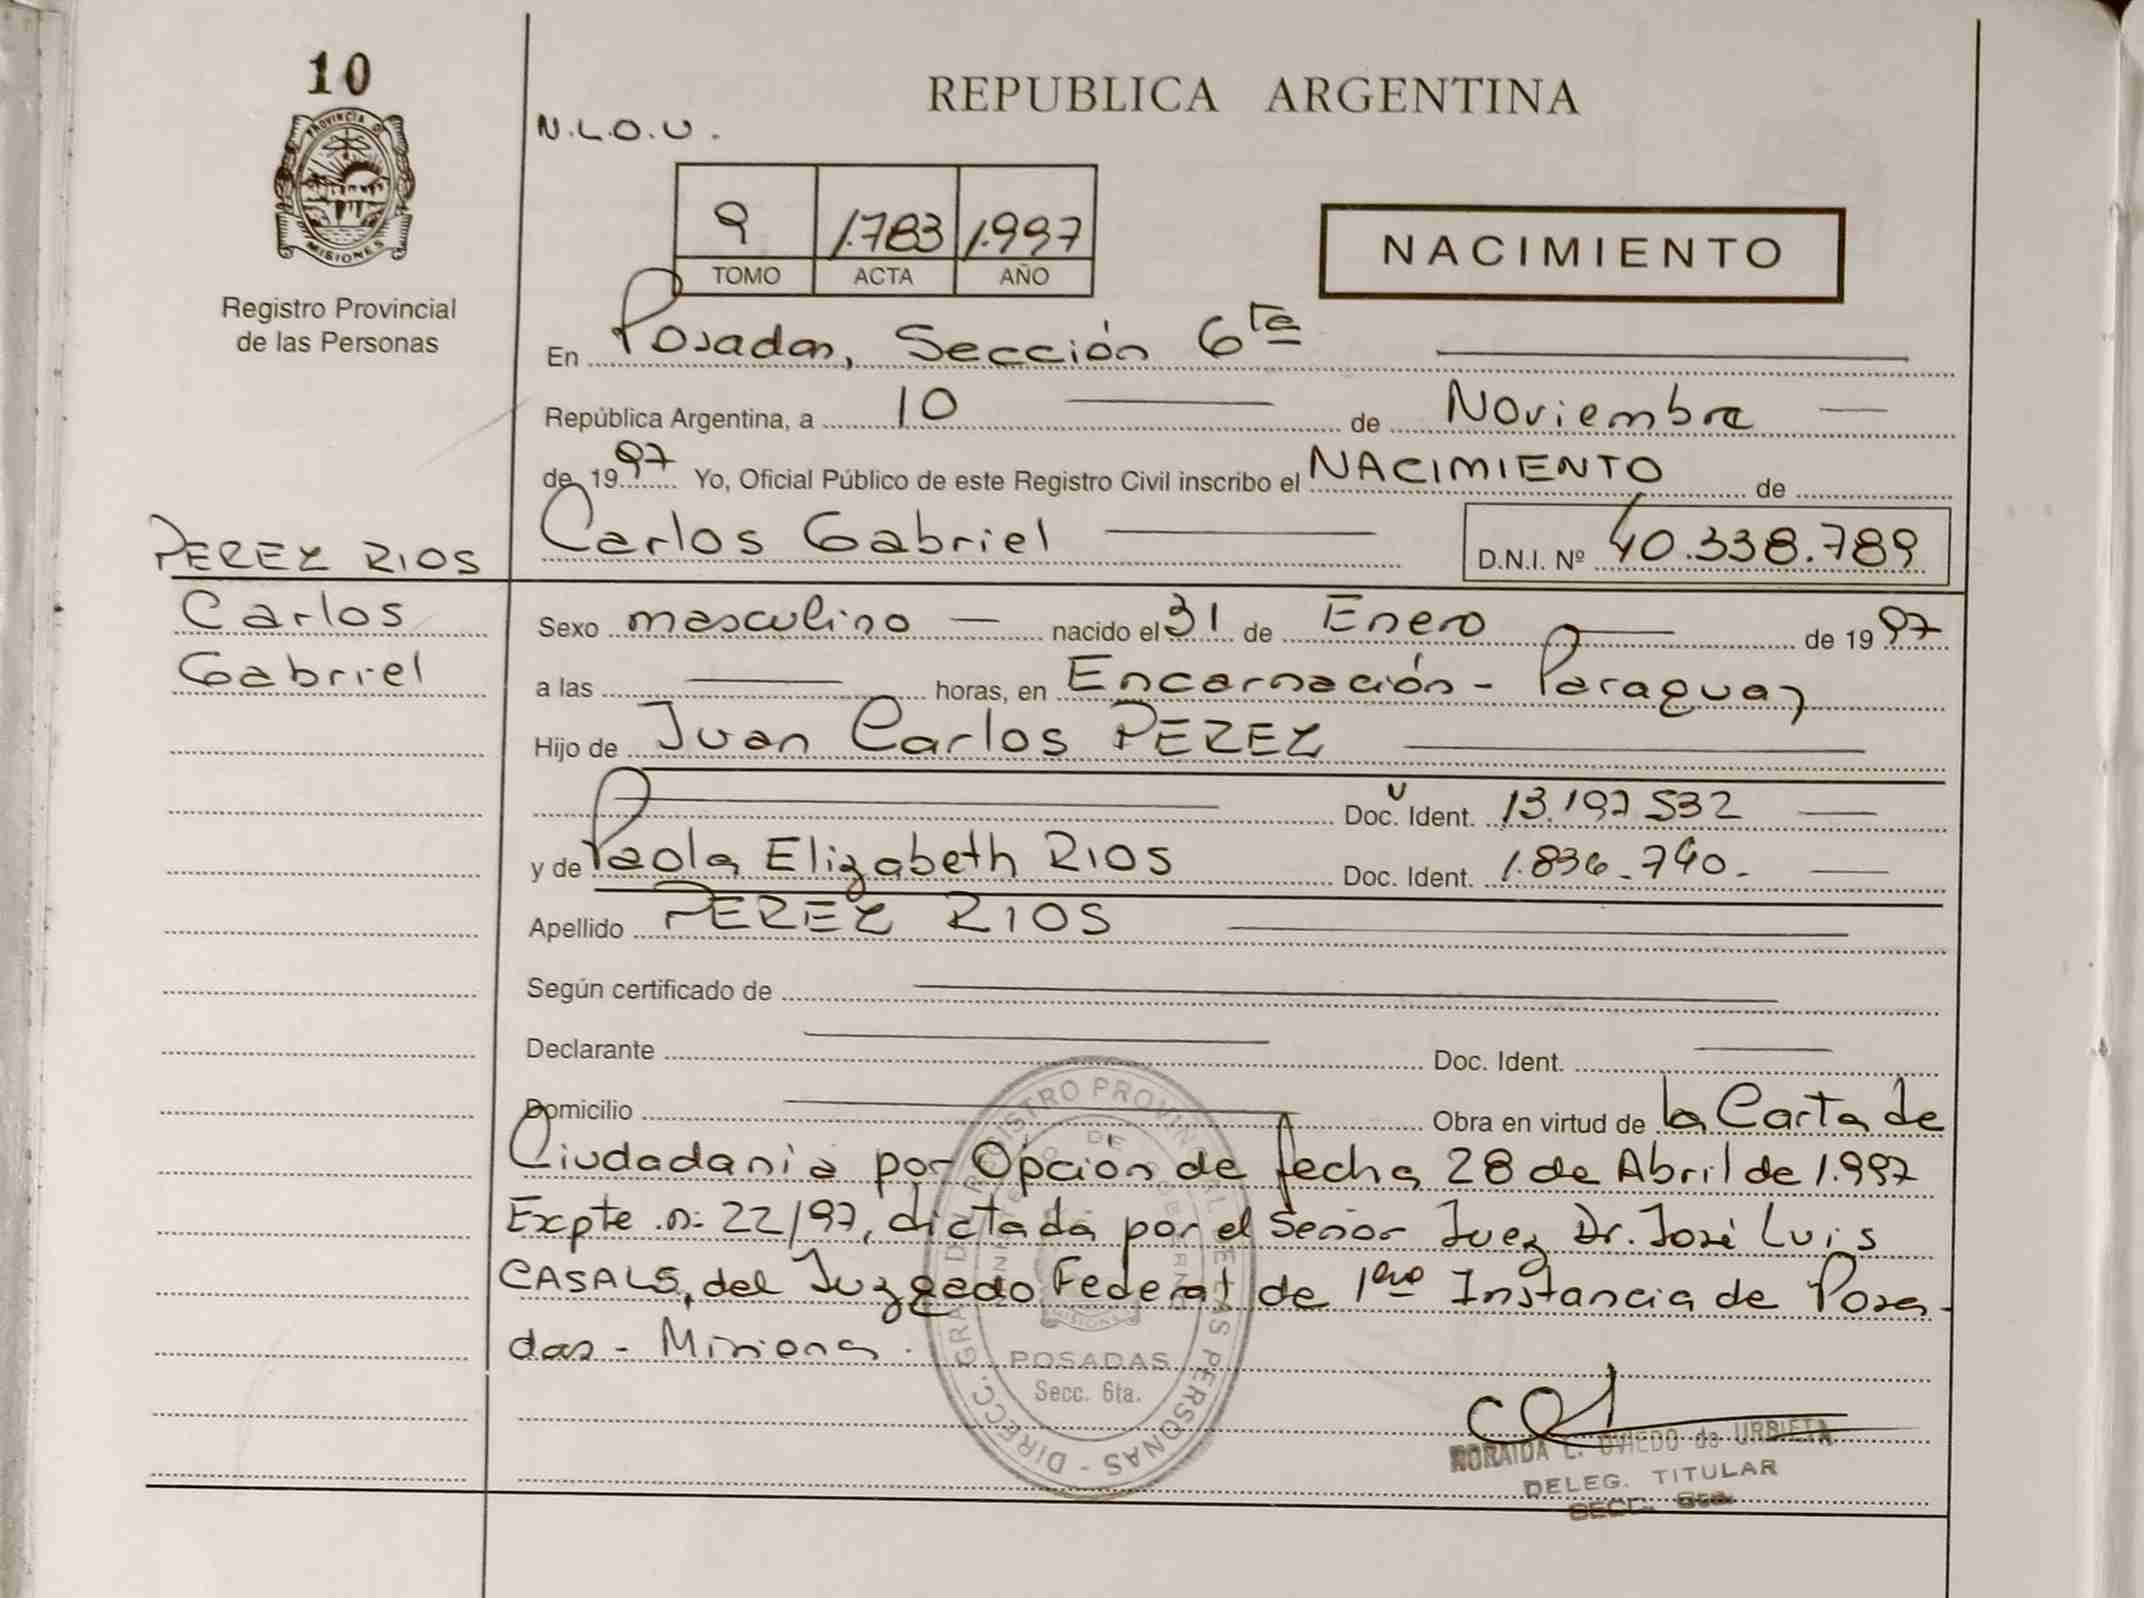 10
PROVINCIA D
MISIONES
Registro Provincial
de las Personas
N.L.O.U.
REPUBLICA ARGENTINA
9 1.783 1.997
TOMO ACTA AÑO
NACIMIENTO
En Posadas, Sección 6ta
República Argentina, a 10 de Noviembre
de 1997 Yo, Oficial Público de este Registro Civil inscribo el NACIMIENTO de
Carlos Gabriel D.N.I. Nº 40.338.789
PEREZ RIOS
Carlos
Gabriel
Sexo masculino nacido el 31 de Enero de 1997
a las horas, en Encarnación - Paraguay
Hijo de Juan Carlos PEREZ
Doc. Ident. 13.197.532
y de Paola Elizabeth RIOS Doc. Ident. 1.836.740.-
Apellido PEREZ RIOS
Según certificado de
Declarante Doc. Ident.
Domicilio Obra en virtud de la Carta de
Ciudadania por Opcion de fecha 28 de Abril de 1.997
Expte .n: 22/97, dictada por el Señor Juez Dr. José Luis
CASALS, del Juzgado Federal de 1era Instancia de Posa-
das - Misiones.
DIRECC. GRAL DEL REGISTRO PROVINCIAL DE LAS PERSONAS
MISIONES
POSADAS
Secc. 6ta.
NORAIDA L. OVIEDO de URBIETA
DELEG. TITULAR
SECC. 6ta.